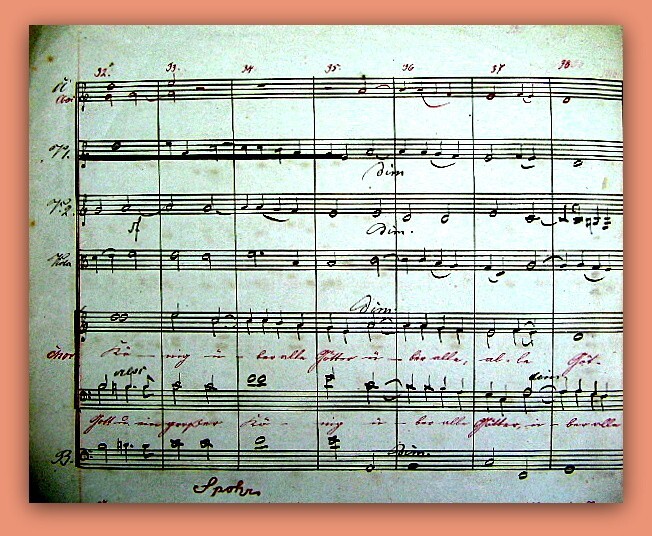 32. 33. 34. 35. 36 37 38
V1.
Dim
V2.
Dim.
Dim.
Chor
Kö – nig ü – ber alle Götter ü – ber alle, al- le Göt-
dim.
Gott u. ein großer Kö – nig ü – ber alle Götter, ü – ber alle
B.
Dim.
Spohr.